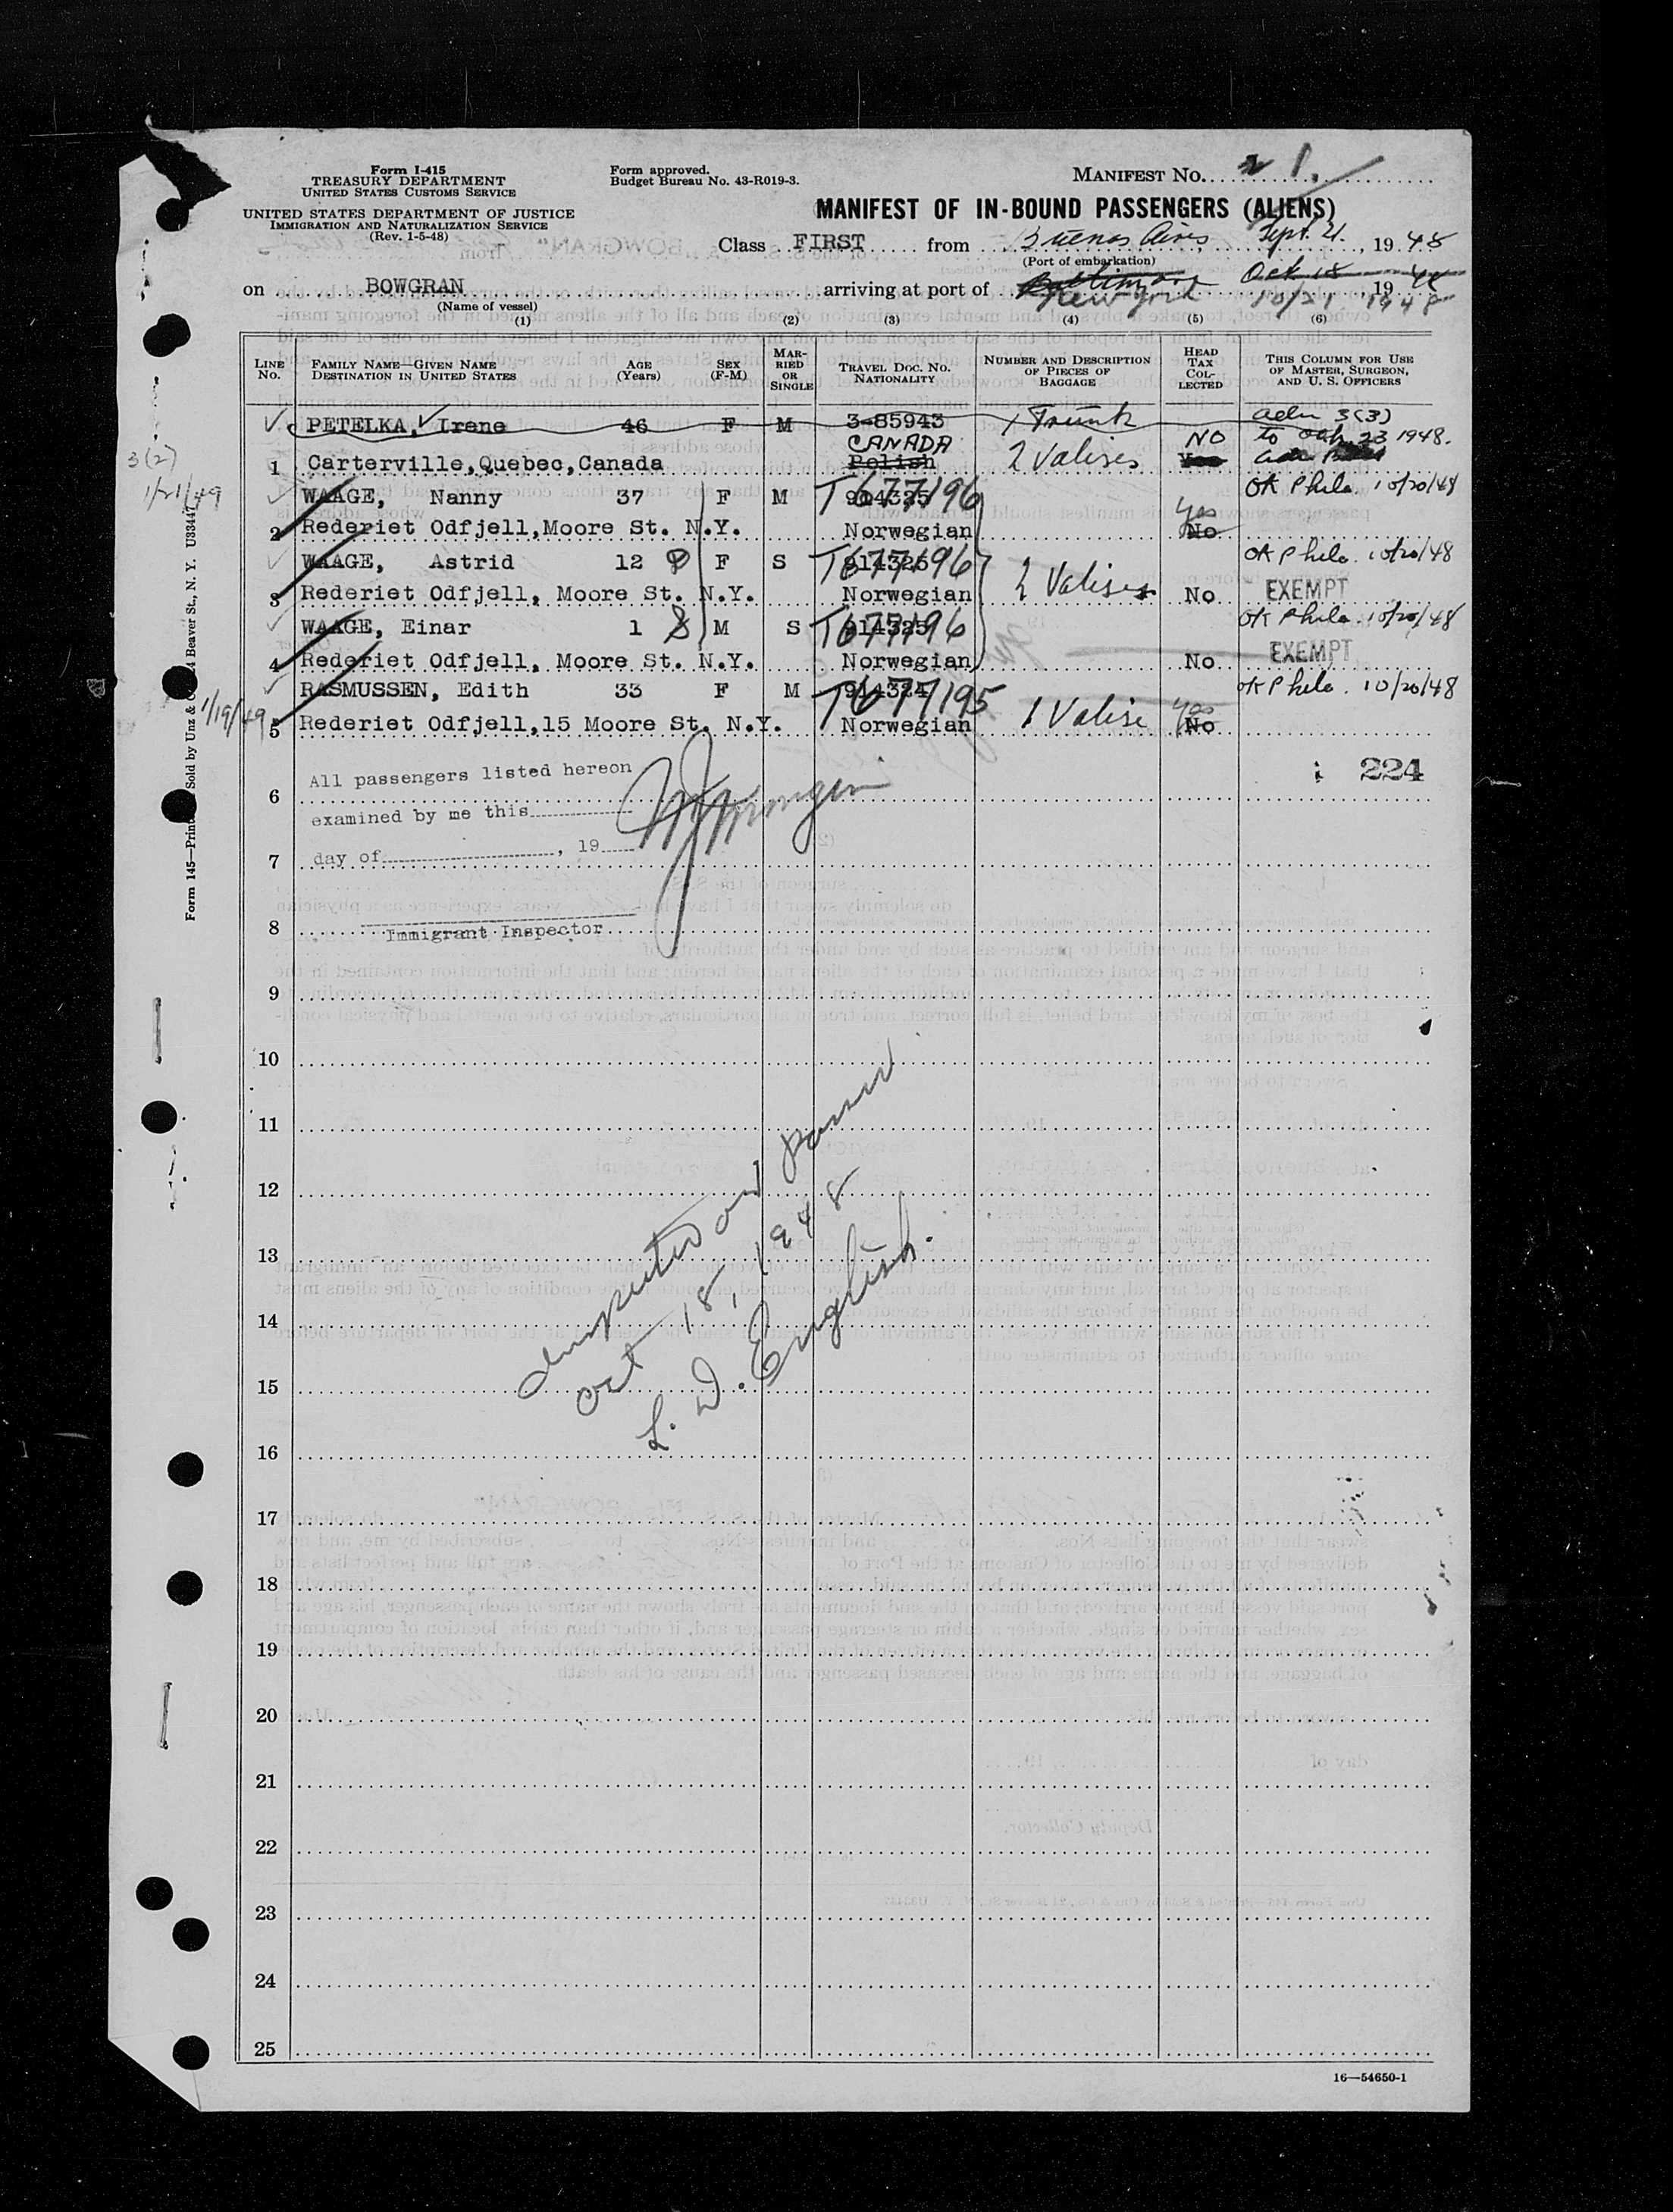 Form I-415
TREASURY DEPARTMENT
UNITED STATES CUSTOMS SERVICE
UNITED STATES DEPARTMENT OF JUSTICE
IMMIGRATION AND NATURALIZATION SERVICE
(Rev. 1-5-48)
Form approved.
Budget Bureau No. 43-R019-3.
MANIFEST NO. 1.
MANIFEST OF IN-BOUND PASSENGERS (ALIENS)
Class FIRST from Buenos Aires, Sept. 21, 1948
(Port of embarkation)
on BOWGRAN arriving at port of Baltimore Oct 18, 1948
New York 10/21 1948
(Name of vessel)
(1) (2) (3) (4) (5) (6)
LINE No. FAMILY NAME—GIVEN NAME DESTINATION IN UNITED STATES AGE (Years) SEX (F-M) MARRIED OR SINGLE TRAVEL DOC. NO. NATIONALITY NUMBER AND DESCRIPTION OF PIECES OF BAGGAGE HEAD TAX COLLECTED THIS COLUMN FOR USE OF MASTER, SURGEON, AND U. S. OFFICERS
PETELKA, Irene 46 F M 3-85943 1 Trunk adm 3(3)
CANADA NO to Oct 23 1948.
1 Carterville,Quebec,Canada Polish 2 Valises Yes
3(2)
1/21/49
WAAGE, Nanny 37 F M 914325 T677196 OK Phila. 10/20/48
2 Rederiet Odfjell,Moore St. N.Y. Norwegian Yes No
WAAGE, Astrid 12 F S 914325 T677196 OK Phila. 10/20/48
3 Rederiet Odfjell, Moore St. N.Y. Norwegian 2 Valises No EXEMPT
WAAGE, Einar 1 M S 914325 T677196 OK Phila. 10/20/48
4 Rederiet Odfjell, Moore St. N.Y. Norwegian No EXEMPT
RASMUSSEN, Edith 33 F M 914324 T677195 OK Phila. 10/20/48
1/19/49
5 Rederiet Odfjell,15 Moore St. N.Y. Norwegian 1 Valise Yes No
224
All passengers listed hereon
6
examined by me this
7 day of , 19
8
Immigrant Inspector
9
10
11
12
13
14
15
16
17
18
19
20
21
22
23
24
25
Inspected and passed
Oct 18, 1948
L. D. English.
16—54650-1